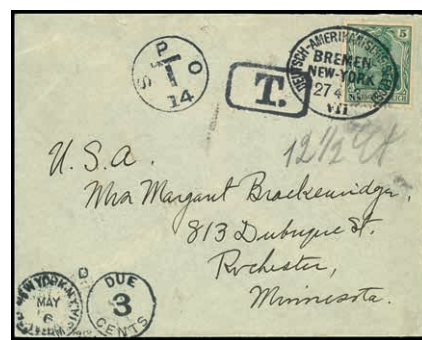 S P O
T
14
T.
DEUTSCH-AMERIKANISCHE
BREMEN
NEW-YORK
27 4
VII
5
REICH
12 1/2
U.S.A.
Mrs Margaret Brackenridge,
813 Dubuque St.
Rochester,
Minnesota.
NEW YORK, N.Y.
MAY
6
DUE
3
CENTS